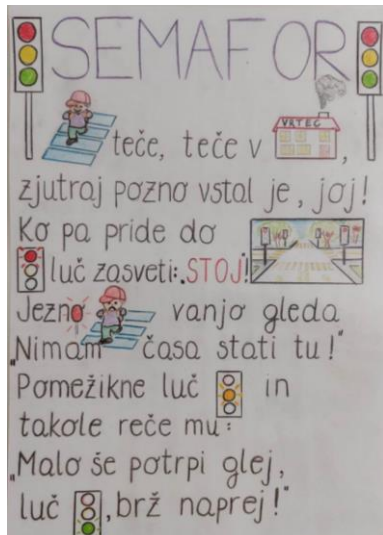 SEMAFOR
teče, teče v VRTEC,
zjutraj pozno vstal je, joj!
Ko pa pride do
luč zasveti: „STOJ!"
Jezno vanjo gleda
„Nimam časa stati tu!"
Pomežikne luč in
takole reče mu:
„Malo še potrpi glej,
luč , brž naprej!"